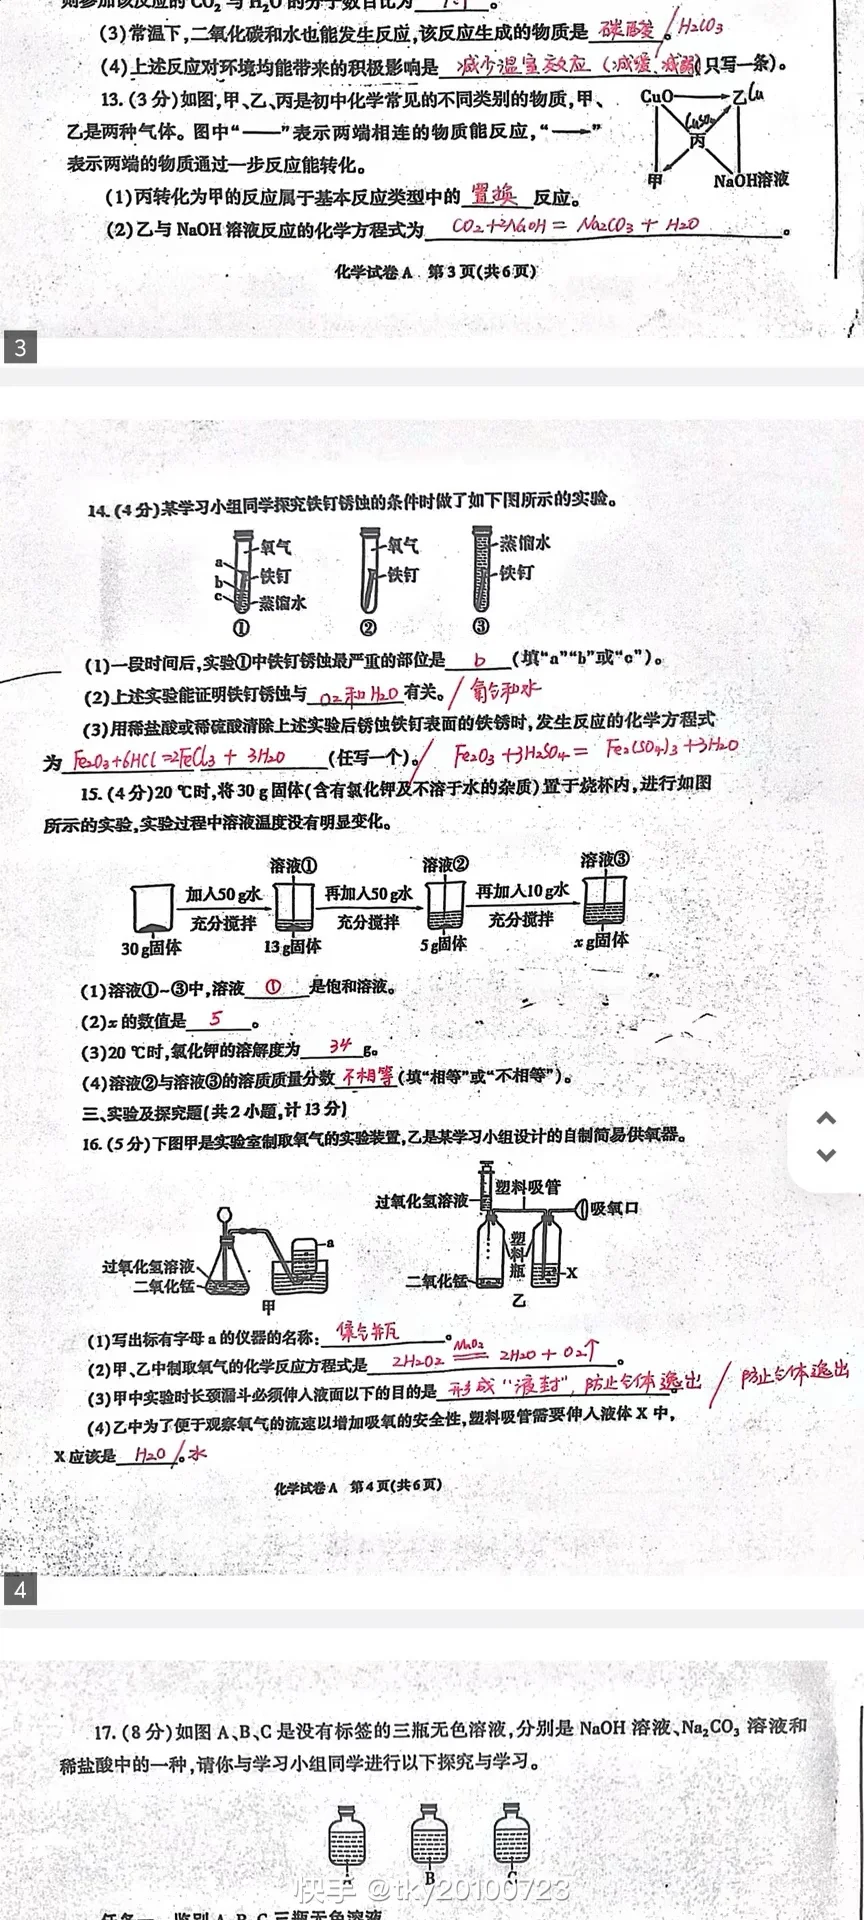 则参加该反应的CO₂与H₂O的分子数目比为 1:1 。
(3)常温下,二氧化碳和水也能发生反应,该反应生成的物质是 碳酸 。/H2CO3
(4)上述反应对环境均能带来的积极影响是 减少温室效应(减缓、减弱(只写一条)。
13.(3分)如图,甲、乙、丙是初中化学常见的不同类别的物质,甲、
乙是两种气体。图中“——”表示两端相连的物质能反应,“→”
表示两端的物质通过一步反应能转化。
CuO 乙 Cu
CuSO4
丙
甲 NaOH溶液
(1)丙转化为甲的反应属于基本反应类型中的 置换 反应。
(2)乙与NaOH溶液反应的化学方程式为 CO2+2NaOH = Na2CO3 + H2O 。
化学试卷A 第3页(共6页)
3
14.(4分)某学习小组同学探究铁钉锈蚀的条件时做了如下图所示的实验。
氧气 氧气 蒸馏水
a
铁钉 铁钉 铁钉
b
c 蒸馏水
① ② ③
(1)一段时间后,实验①中铁钉锈蚀最严重的部位是 b (填“a”“b”或“c”)。
(2)上述实验能证明铁钉锈蚀与 O2和H2O 有关。/氧气和水
(3)用稀盐酸或稀硫酸清除上述实验后锈蚀铁钉表面的铁锈时,发生反应的化学方程式
为 Fe2O3+6HCl=2FeCl3 + 3H2O (任写一个)。/ Fe2O3 +3H2SO4= Fe2(SO4)3 +3H2O
15.(4分)20 ℃时,将30 g固体(含有氯化钾及不溶于水的杂质)置于烧杯内,进行如图
所示的实验,实验过程中溶液温度没有明显变化。
溶液① 溶液② 溶液③
加入50 g水 再加入50 g水 再加入10 g水
充分搅拌 充分搅拌 充分搅拌
30 g固体 13 g固体 5 g固体 x g固体
(1)溶液①~③中,溶液 ① 是饱和溶液。
(2)x的数值是 5 。
(3)20 ℃时,氯化钾的溶解度为 34 g。
(4)溶液②与溶液③的溶质质量分数 不相等 (填“相等”或“不相等”)。
三、实验及探究题(共2小题,计13分)
16.(5分)下图甲是实验室制取氧气的实验装置,乙是某学习小组设计的自制简易供氧器。
塑料吸管
过氧化氢溶液 吸氧口
塑料瓶
a
过氧化氢溶液
二氧化锰 二氧化锰 X
甲 乙
(1)写出标有字母a的仪器的名称: 集气瓶 。
(2)甲、乙中制取氧气的化学反应方程式是 2H2O2 MnO2 2H2O + O2↑ 。
(3)甲中实验时长颈漏斗必须伸入液面以下的目的是 形成“液封”,防止气体逸出 / 防止气体逸出
(4)乙中为了便于观察氧气的流速以增加吸氧的安全性,塑料吸管需要伸入液体X中,
X应该是 H2O 。/水
化学试卷A 第4页(共6页)
4
17.(8分)如图A、B、C是没有标签的三瓶无色溶液,分别是NaOH溶液、Na₂CO₃溶液和
稀盐酸中的一种,请你与学习小组同学进行以下探究与学习。
A B C
快手 @tky20100723
任务一 鉴别A、B、C三瓶无色溶液